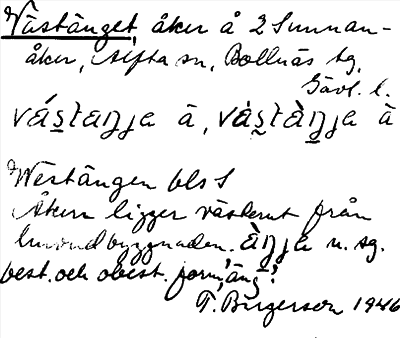 Västänget, åker å 2 Sunnan-
åker, Alfta sn, Bollnäs tg,
Gävl. l.
vás̱taŋja ä, và́s̱tàŋja ä
Westängen bls S
Åkern ligger västerut från
huvudbyggnaden. àŋja n. sg.
best. och obest. form, 'äng'.
T. Birgerson 1946